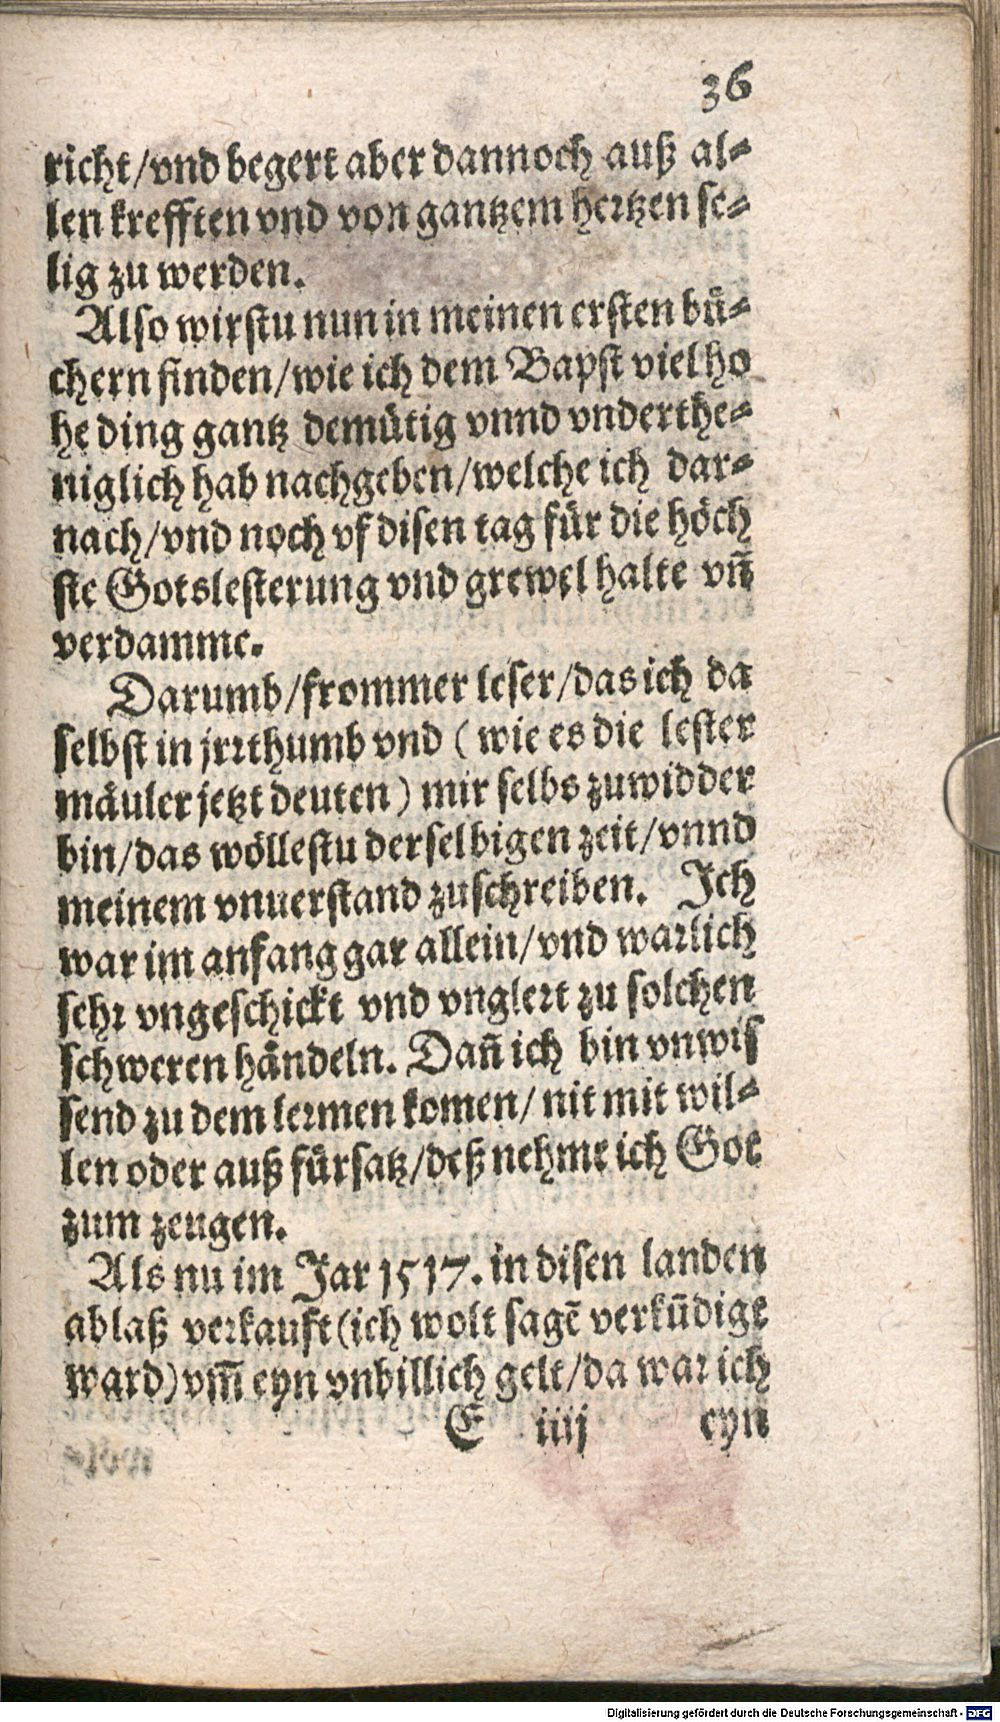 36
richt/vnd begert aber dannoch auß al-
len krefften vnd von gantzem hertzen se-
lig zu werden.
Also wirstu nun in meinen ersten bü-
chern finden/wie ich dem Bapst viel ho
he ding gantz demütig vnnd vnderthe-
niglich hab nachgeben/welche ich dar-
nach/vnd noch vf disen tag für die höch
ste Gotslesterung vnd grewel halte vñ
verdamme.
Darumb/frommer leser/das ich da
selbst in jrrthumb vnd (wie es die lester
mäuler jetzt deuten) mir selbs zuwidder
bin/das wöllestu derselbigen zeit/vnnd
meinem vnuerstand zuschreiben. Ich
war im anfang gar allein/vnd warlich
sehr vngeschickt vnd vnglert zu solchen
schweren händeln. Dañ ich bin vnwis
send zu dem lermen komen/nit mit wil-
len oder auß fürsatz/deß nehme ich Got
zum zeugen.
Als nu im Jar 1517. in disen landen
ablaß verkauft(ich wolt sagē verkūdigt
ward)vm̄ eyn vnbillich gelt/da war ich
E iiij eyn
Digitalisierung gefördert durch die Deutsche Forschungsgemeinschaft - DFG